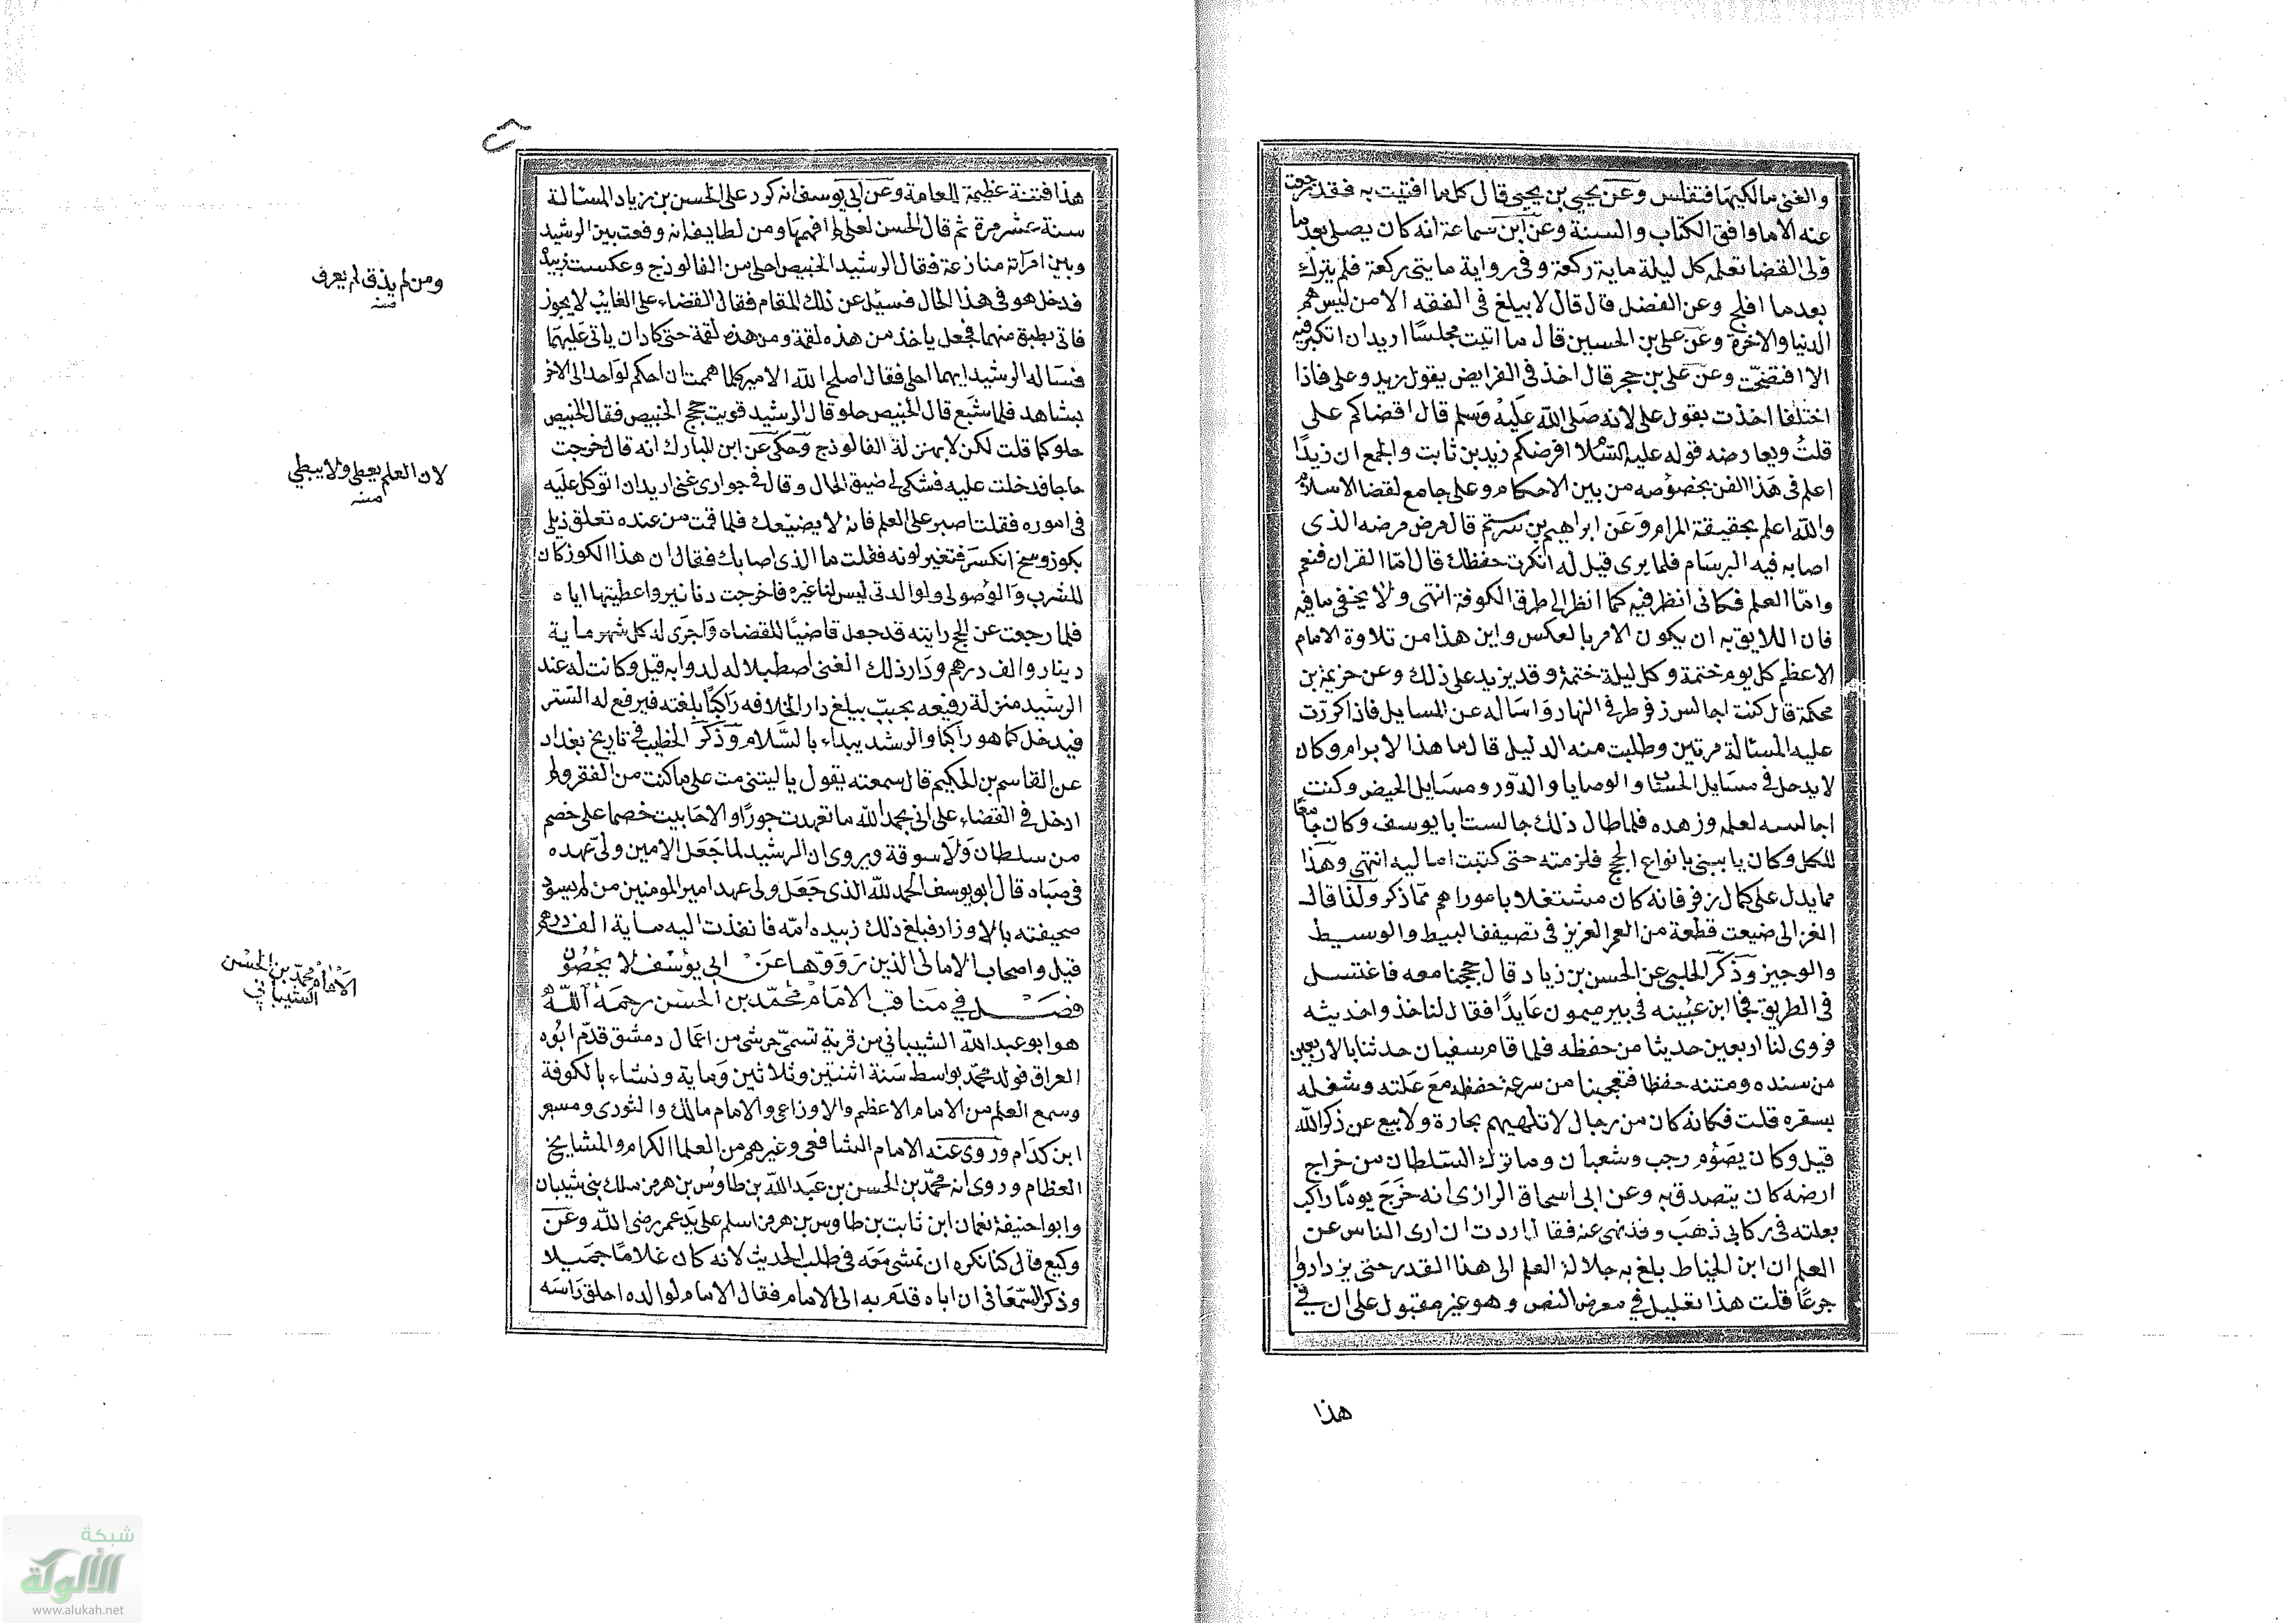 والغنى مالكيها فتفلس وعن يحيى بن يحيى قال كل ما افتيت به فقد رجعت
عنه الا ما وافق الكتاب والسنة وعن ابن سماعة انه كان يصلى بعد ما
ولى القضا تعلم كل ليلة ماية ركعة وفى رواية مايتى ركعة فلم يترك
بعد ما افلج وعن الفضل قال قال لا يبلغ فى الفقه الا من ليس هم
الدنيا والاخرة وعن على بن الحسين قال ما اتيت مجلسًا اريد ان اتكبر فيه
الا افتضحت وعن على بن حجر قال اخذ فى الفرايض بقول زيد وعلى فاذا
اختلفا اخذت بقول على لانه صلى الله عليه وسلم قال اقضاكم على
قلت ويعارضه قوله عليه السلام افرضكم زيد بن ثابت والجمع ان زيدًا
اعلم فى هذا الفن بخصوصه من بين الاحكام وعلى جامع لقضا الاسلام
والله اعلم بحقيقة المرام وعن ابراهيم بن رستم قال مرض مرضه الذى
اصابه فيه البرسام فلما برى قيل له انكرت حفظك قال امّا القران فنعم
وامّا العلم فكانى انظر فيه كما انظر الى طرق الكوفة انتهى ولا يخفى ما فيه
فان اللايق به ان يكون الامر بالعكس واين هذا من تلاوة الامام
الاعظم كل يوم ختمة وكل ليلة ختمة وقد يزيد على ذلك وعن خزيمة بن
محكمة قال كنت اجالس زفر طرفى النهار واساله عن المسايل فاذا كررت
عليه المسئالة مرتين وطلبت منه الدليل قال ما هذا الابرام وكان
لا يدخل فى مسايل الحساب والوصايا والدّور ومسايل الحيض وكنت
اجالسه لعلمه وزهده فلما طال ذلك جالست ابا يوسف وكان جامعًا
للكل وكان ياتينى بانواع الحج فلزمته حتى كتبت اماليه انتهى وهذا
مما يدل على كمال زفر فانه كان مشتغلا باموراهم ممّا ذكر ولذا قال
الغزالى ضيعت قطعة من العمر العزيز فى تصيفف البيط والوسيط
والوجيز وذكر الحلبى عن الحسن بن زياد قال حججنا معه فاغتسل
فى الطريق فجا ابن عيينه فى بير ميمون عايدًا فقال لنا خذوا حديثه
فروى لنا اربعين حديثا من حفظه فلما قام سفيان حدثنا بالاربعين
من سنده ومتنه حفظا فتعجبنا من سرعة حفظه مع علته وشغله
بسفره قلت فكانه كان من رجال لا تلهيهم تجارة ولا بيع عن ذكر الله
قيل وكان يصوم رجب وشعبان وما ترك السلطان من خراج
ارضه كان يتصدق به وعن ابى اسحاق الرازى انه خرج يومًا راكب
بغلته فى ركابى ذهب وقد نهى عنه فقال اردت ان ارى الناس عن
العلم ان ابن الخياط بلغ به جلالة العلم الى هذا القدر حتى يزدادوا
جرعًا قلت هذا تعليل فى معرض النص وهو غير مقبول على ان فى
هذا
هذا فتنة عظيمة للعامة وعن ابى يوسف انه كور على الحسن بن زياد المسئالة
ستة عشر مرة ثم قال الحسن لعلى لم افهمها ومن لطايفه انه وقعت بين الرشيد
وبين امراته منازعة فقال الرشيد الخبيص احلى من الفالوذج وعكست زبيدة
فدخل هو فى هذا الحال فسئيل عن ذلك المقام فقال القضاء على الغايب لا يجوز
فاتى بطبق منهما فجعل ياخذ من هذه لقمة ومن هذه لقمة حتى كاد ان ياتى عليهما
فساله الرشيد ايهما احلى فقال اصلح الله الامير كلما هممت ان احكم لواحد اتى الاخر
بشاهد فلما شبع قال الخبيص حلو قال الرشيد قويت حجج الخبيص فقال الخبيص
حلو كما قلت لكن لا بمنزلة الفالوذج وحكى عن ابن المبارك انه قال خرجت
حاجا فدخلت عليه فشكى لى ضيق الحال وقال فى جوارى غنى اريد ان اتوكل عليه
فى اموره فقلت اصبر على العلم فانه لا يضيّعك فلما قمت من عنده تعلق ذيلى
بكوز وسخ انكسر فتغير لونه فقلت ما الذى اصابك فقال ان هذا الكوز كان
للشرب والوضو لى ولوالدتى ليس لنا غيره فاخرجت دنانير واعطيتها اياه
فلما رجعت عن الحج رايته قد جعل قاضيًا للقضاه واجرى له كل شهر ماية
دينار والف درهم ودار ذلك الغنى اصطبلا له لدوابه قيل وكانت له عند
الرشيد منزلة رفيعه بحيث يبلغ دار الخلافه راكبًا بلغته فيرفع له الستر
فيدخل كما هو راكبًا والرشيد يبداء بالسّلام وذكر الخطيب فى تاريخ بغداد
عن القاسم بن الحكيم قال سمعته يقول يا ليتنى مت على ما كنت من الفقر ولم
ادخل فى القضاء على انى بحمد الله ما تعمدت جورًا ولا حابيت خصما على خصم
من سلطان ولا سوقة ويروى ان الرشيد لما جعل الامين ولىّ عهده
فى صباه قال ابو يوسف الحمد لله الذى جعل ولى عهد امير المومنين من لم يسود
صحيفته بالاوزار فبلغ ذلك زبيده امّه فانفذت اليه ماية الف درهم
قيل واصحاب الامالى الذين رووها عن ابى يوسف لا يحصون
فصل فى مناقب الامام محمد بن الحسن رحمه الله
هو ابو عبد الله الشيبانى من قرية تسمى حرشى من اعمال دمشق قدم ابوه
العراق فولد محمد بواسط سنة اثنتين وثلاثين وماية ونشاء بالكوفة
وسمع العلم من الامام الاعظم والاوزاعى والامام مالك والثورى ومسعر
ابن كدام وروى عنه الامام الشافعى وغيرهم من العلما الكرام والمشايخ
العظام وروى انه محمّد بن الحسن بن عبد الله بن طاوس بن هرمز ملك بنى شيبان
وابو احنيفة نعمان ابن ثابت بن طاوس بن هرمز اسلم على يد عمر رضى الله وعن
وكيع قال كنا نكره ان نمشى معه فى طلب الحديث لانه كان غلامًا جميلا
وذكر السمعانى ان اباه قدم به الى الامام فقال الامام لوالده احلق راسه
ومن لم يذق لم يعرف
منه
لان العلم يعطى ولا يبطي
منه
الامام محمّد بن الحسن
الشيباني
شبكة
الألوكة
www.alukah.net